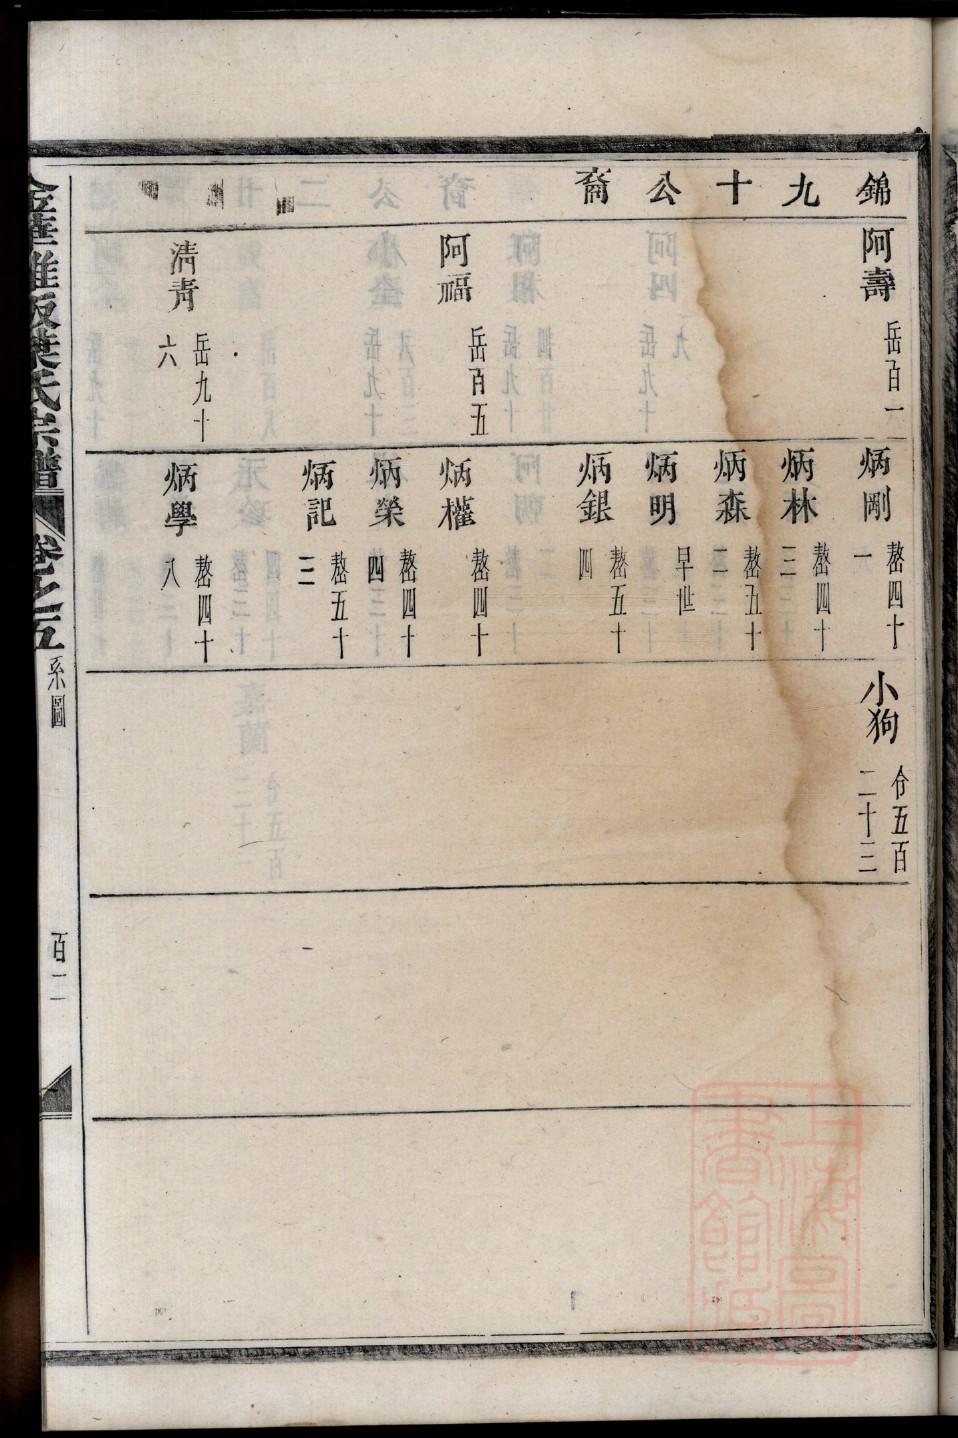 錦九十公裔
阿壽 岳百一
阿福 岳百五
清靑 岳九十六
炳剛 嶅四十一
炳林 嶅四十三
炳森 嶅五十二
炳明 早世
炳銀 嶅五十四
炳權 嶅四十
炳榮 嶅四十四
炳記 嶅五十三
炳學 嶅四十八
小狗 令五百二十三
葉氏宗譜 卷之五 系圖 百二
上海圖書館藏